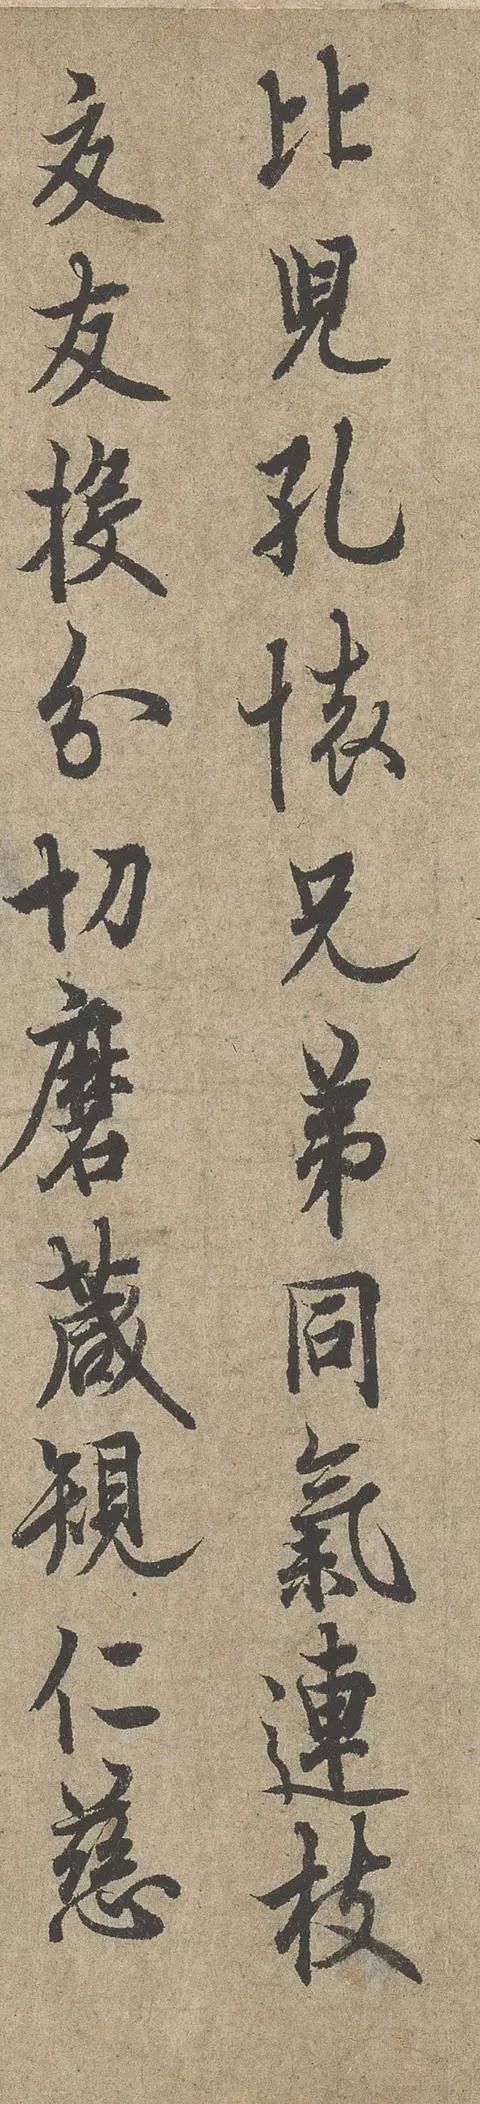 比兒孔懷兄弟同氣連枝
交友投分切磨箴規仁慈